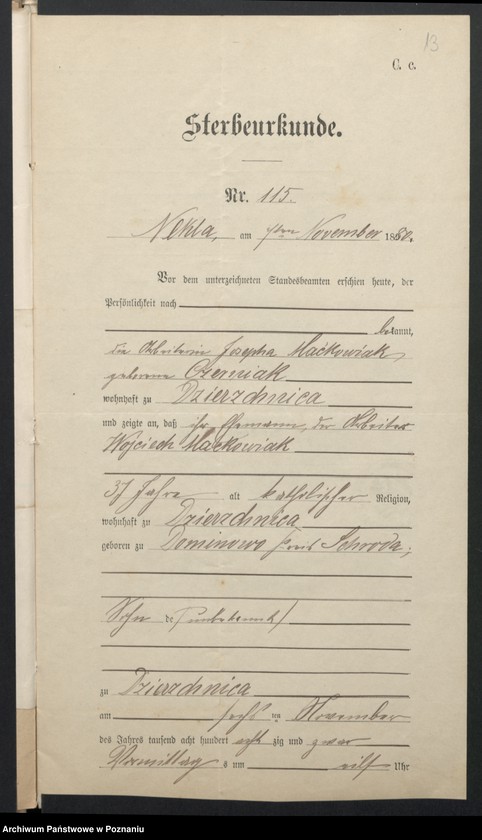 13
C. c.
Sterbeurkunde.
Nr. 115.
Nekla, am November 1880.
Vor dem unterzeichneten Standesbeamten erschien heute, der
Persönlichkeit nach
bekannt,
die Arbeiterin Josepha Maćkowiak,
geborene Czerniak
wohnhaft zu Dzierzchnica
und zeigte an, daß ihr Ehemann, der Arbeiter
Wojciech Maćkowiak
37 Jahre alt katholischer Religion,
wohnhaft zu Dzierzchnica
geboren zu Dominowo Kreis Schroda,
Sohn de (unbekannt)
zu Dzierzchnica
am sechs ten November
des Jahres tausend acht hundert acht zig und zwar
Vormittag s um eilf Uhr
Archiwum Państwowe w Poznaniu